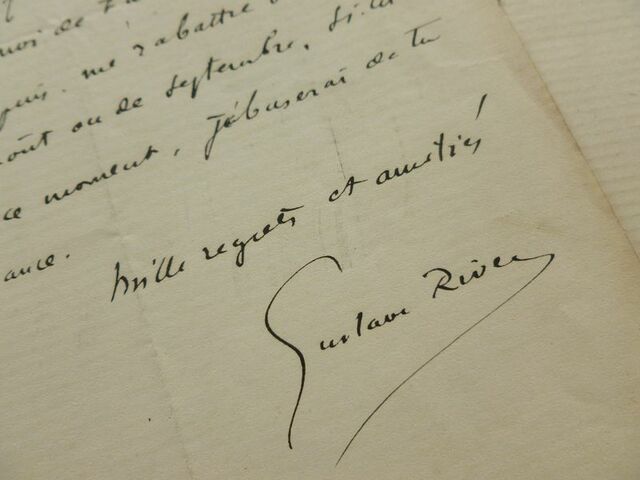 moi de
puis me rabattre
août ou de septembre, si tu
ce moment, j'abuserai de ta
ance.
Mille regrets et amitiés
Gustave Rivet